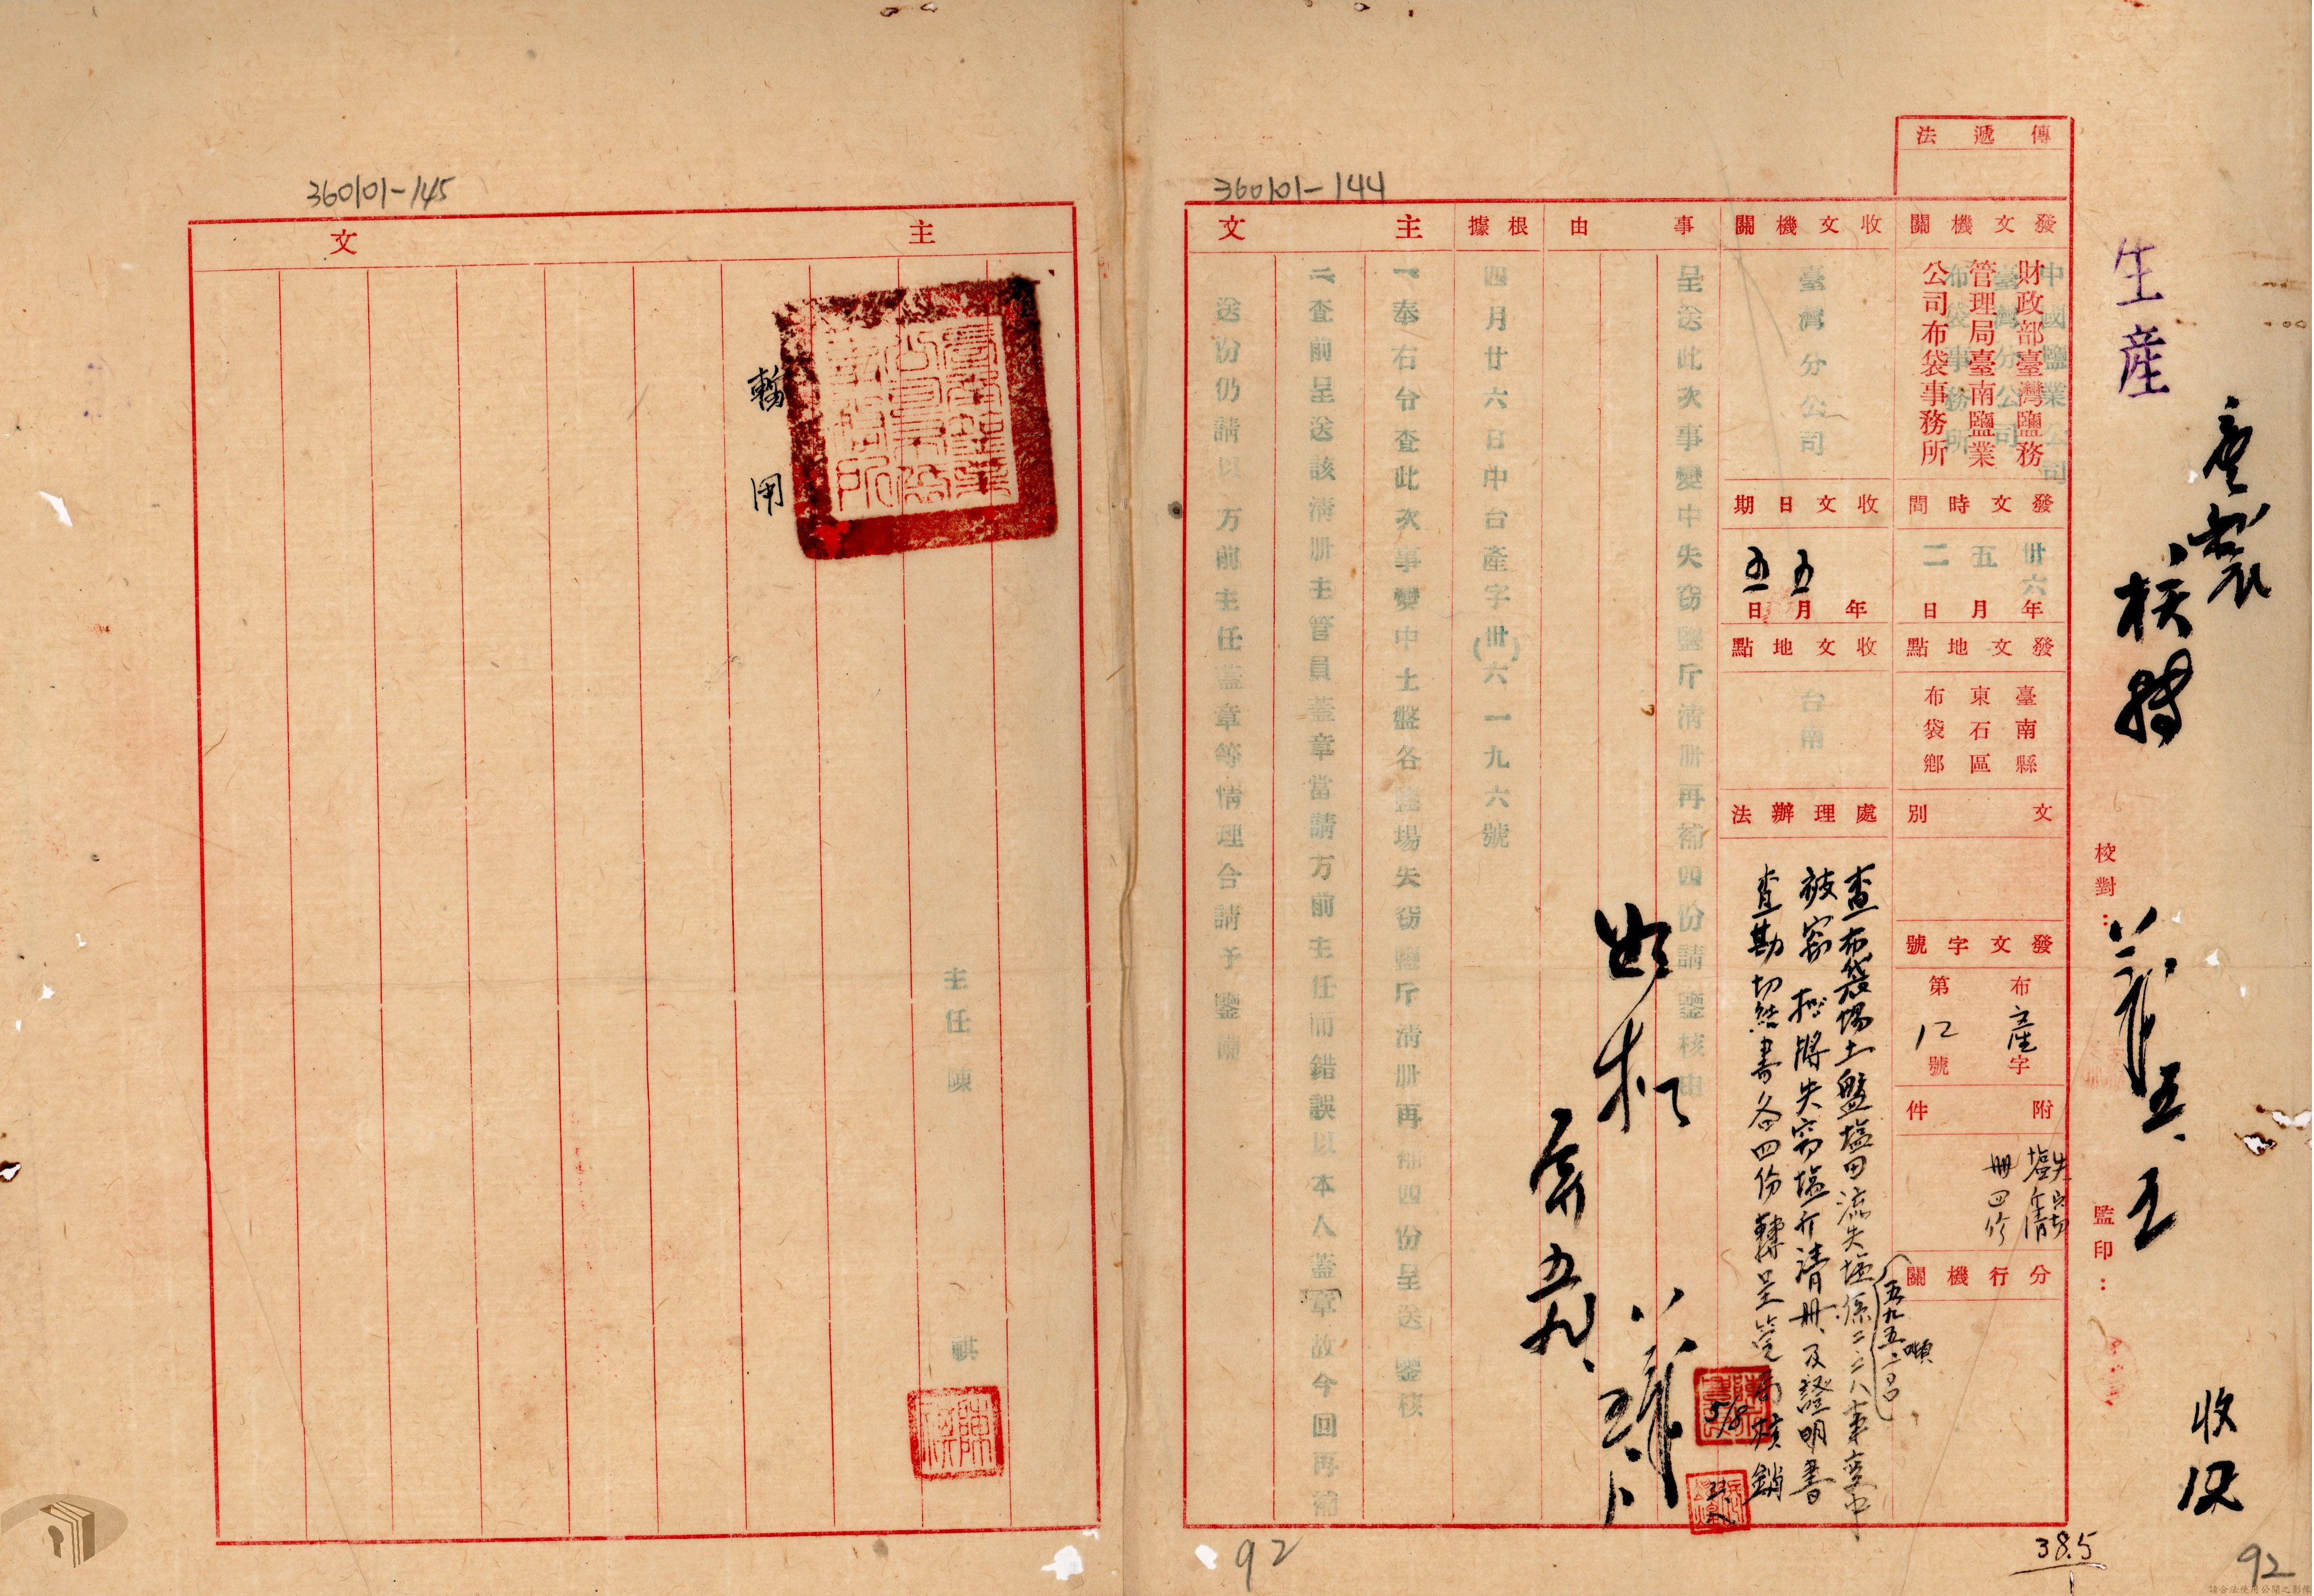 360101-144
傳遞法
生產
產製
核辦
校對：
監印：
收
發文機關
中國鹽業公司
臺灣分公司
布袋事務所
財政部臺灣鹽務
管理局臺南鹽業
公司布袋事務所
發文時間
卅六年五月二日
發文地點
臺南縣
東石區
布袋鄉
文別
發文字號
布產字
第12號
附件
失竊
塩斤清
冊四份
分行機關
收文機關
臺灣分公司
收文日期
年五月五日
收文地點
台南
處理辦法
查布袋場土盤塩田流失塩係二二八事變中
(五九五·二呂噸)
被竊擬將失竊塩斤清冊及證明書
查勘切結書各四份轉呈管局核銷
5/8
事由
呈送此次事變中失竊鹽斤清冊再補四份請鑒核由
如擬
五九、
根據
四月廿六日中台產字(卅六)一九六號
主文
一、奉右台查此次事變中土盤各鹽場失竊鹽斤清冊再補四份呈送鑒核
二、查前呈送該清冊主管員蓋章當請万前主任而錯誤以本人蓋章故今回再補
送份仍請以万前主任蓋章等情理合請予鑒
92
38.5
92
請合法使用公開之影像
360101-145
主文
暫用
主任陳祺